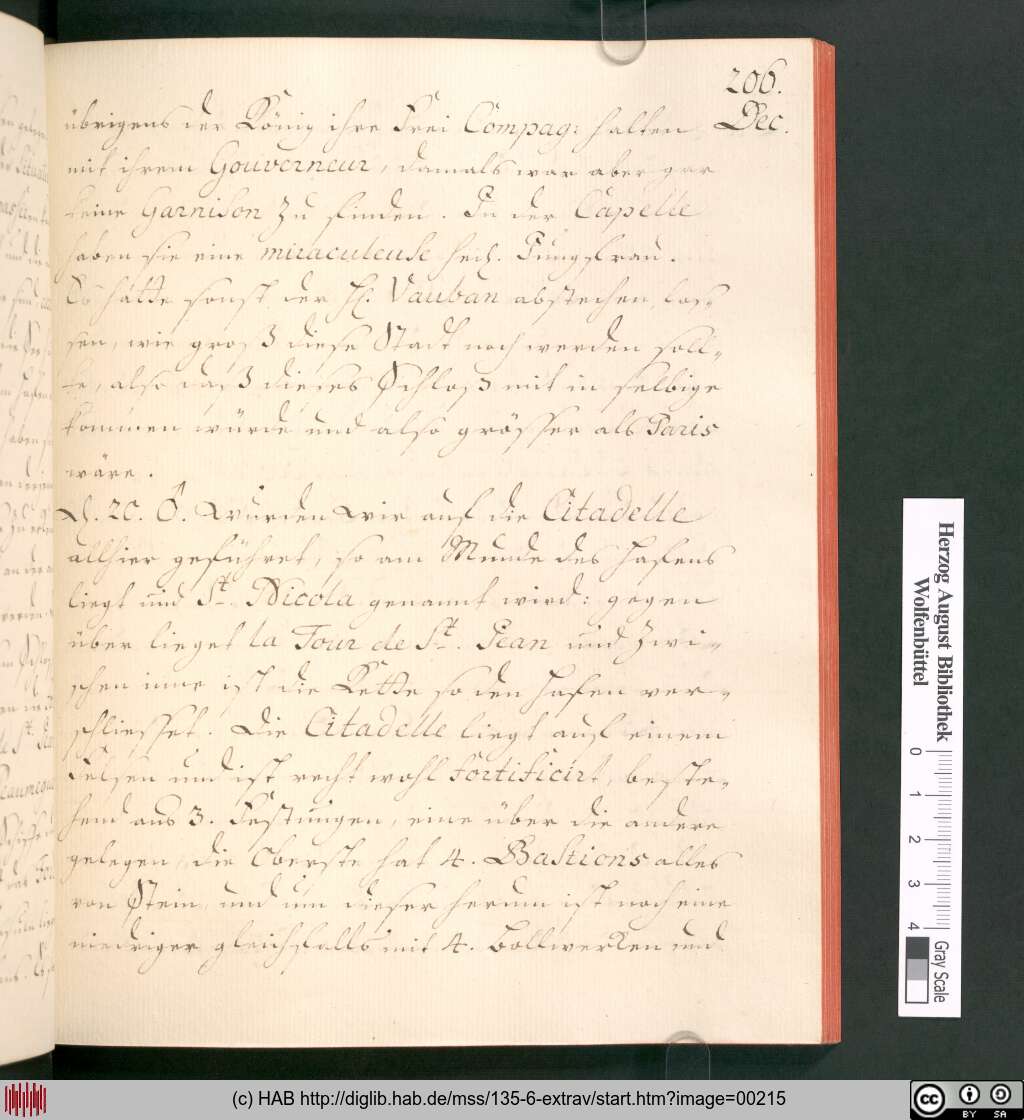 206.
Dec.
übrigens der König ihre Frei Compag: halten
mit ihrem Gouverneur, damals war aber gar
keine Garnison zu finden. In der Capelle
haben sie eine miraculeuse heil. Jungfrau.
Es hätte sonst der H. Vauban abstechen las-
sen, wie groß diese Stadt noch werden soll-
te, also daß dieses Schloß mit in selbige
kommen würde und also grösser als Paris
wäre.
D. 20. wurden wir auf die Citadelle
allhier geführet, so am Munde des Hafens
liegt und St. Nicola genannt wird: gegen
über lieget la Tour de St. Jean und zwi-
schen inne ist die Kette so den Hafen ver-
schliesset. Die Citadelle liegt auf einem
Felsen und ist recht wohl fortificirt, beste-
hend aus 3. Festungen, eine über die andere
gelegen, die Oberste hat 4. Bastions alles
von Stein, und um dieser herum ist noch eine
niedriger gleichfalls mit 4. Bollwerken und
Herzog August Bibliothek
Wolfenbüttel
0 1 2 3 4
Gray Scale
(c) HAB http://diglib.hab.de/mss/135-6-extrav/start.htm?image=00215
cc
BY SA